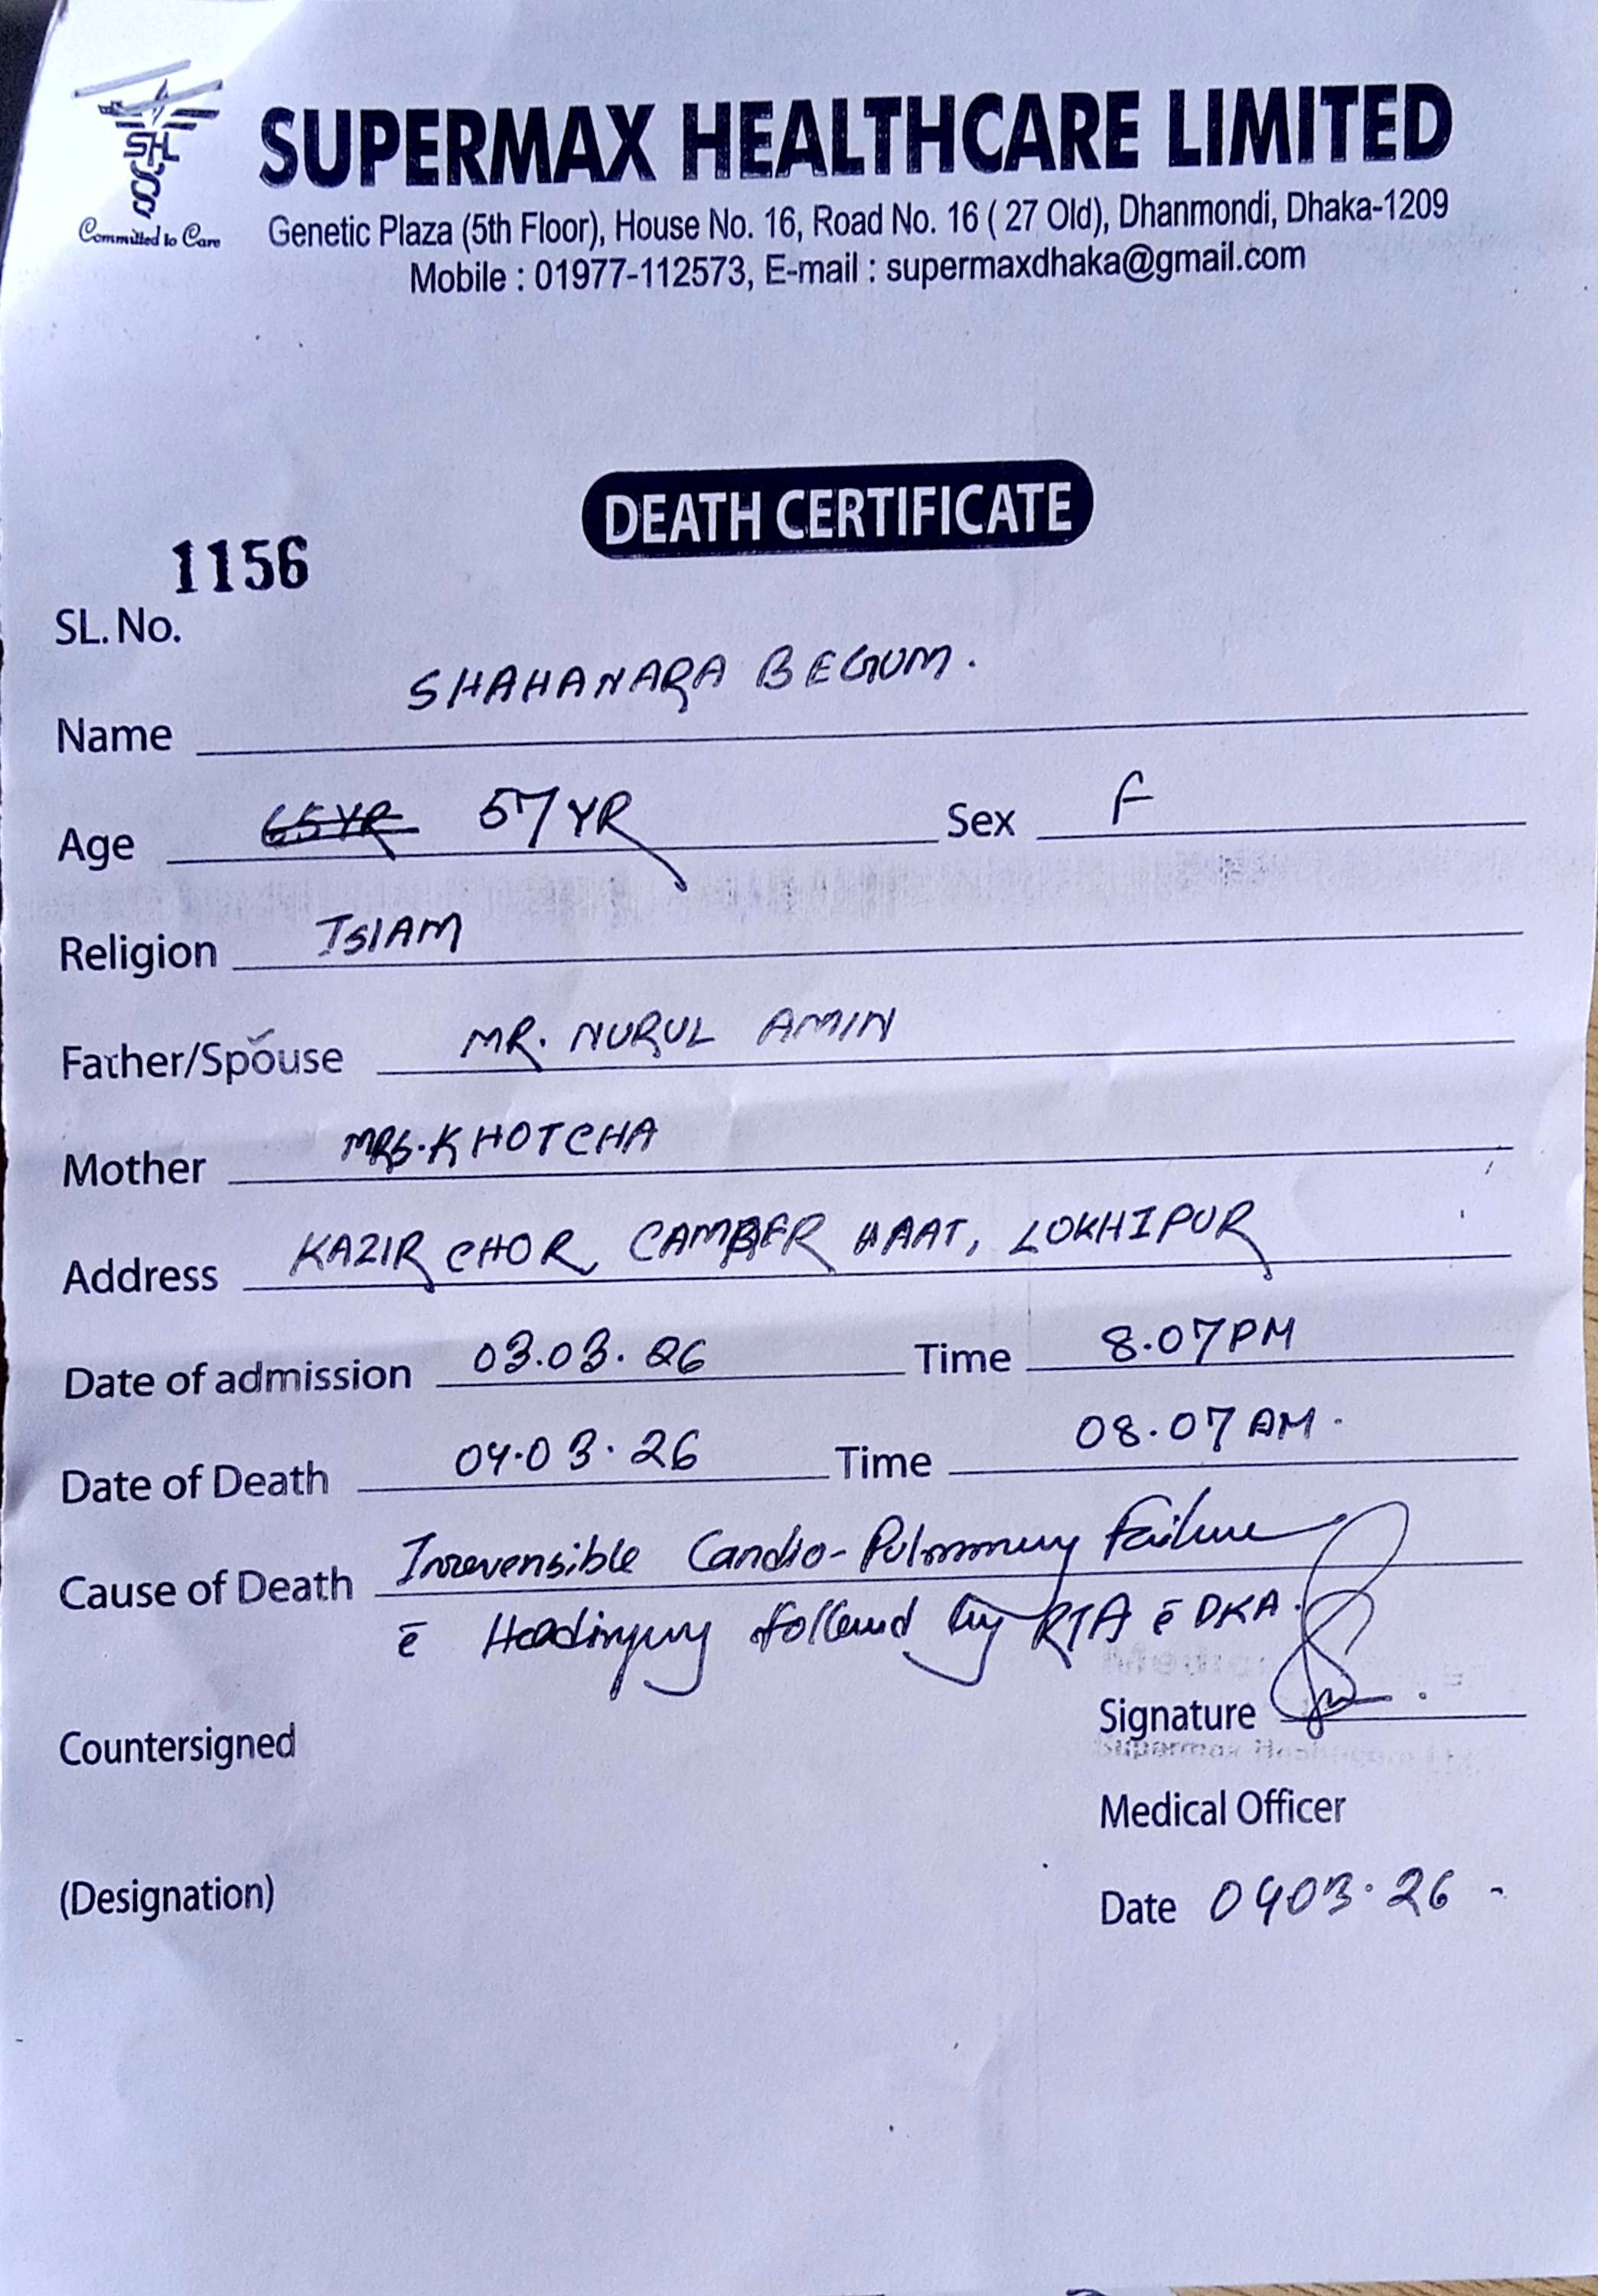 SHL
Committed to Care
SUPERMAX HEALTHCARE LIMITED
Genetic Plaza (5th Floor), House No. 16, Road No. 16 ( 27 Old), Dhanmondi, Dhaka-1209
Mobile : 01977-112573, E-mail : supermaxdhaka@gmail.com
DEATH CERTIFICATE
1156
SL. No.
Name SHAHANARA BEGUM.
Age 65 YR 57 YR Sex F
Religion ISLAM
Father/Spouse MR. NURUL AMIN
Mother MRS. KHOTCHA
Address KAZIR CHOR, CAMBER HAAT, LOKHIPUR
Date of admission 03.03.26 Time 8.07PM
Date of Death 04.03.26 Time 08.07 AM.
Cause of Death Irreversible Cardio-Pulmonary Failure
c̄ Headinjury followed by RTA c̄ DKA.
Countersigned
Signature
Medical Officer
(Designation)
Date 0403.26